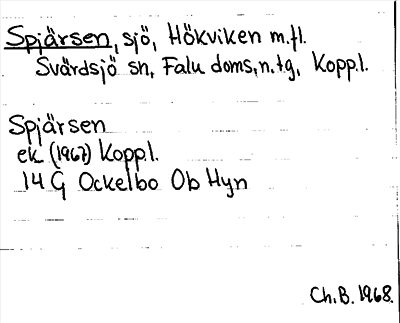 Spjärsen, sjö, Hökviken m.fl.
Svärdsjö sn, Falu doms.n.t.g, Koppl.
Spjärsen
ek (1967) Koppl.
14 G Ockelbo Ob Hyn
Ch. B. 1968.